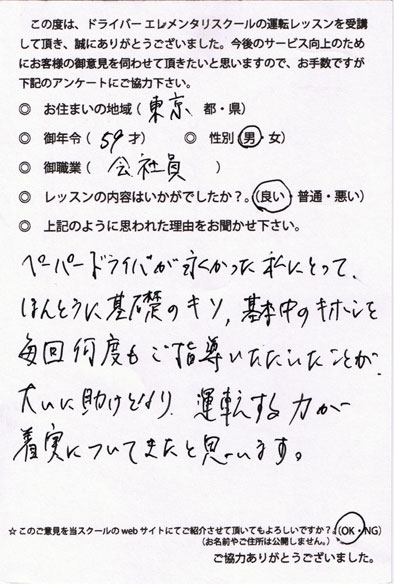 この度は、ドライバー エレメンタリスクールの運転レッスンを受講
して頂き、誠にありがとうございました。今後のサービス向上のため
にお客様の御意見を伺わせて頂きたいと思いますので、お手数ですが
下記のアンケートにご協力下さい。
◎ お住まいの地域（東京 都・県）
◎ 御年令（59才） ◎ 性別（男・女）
◎ 御職業（会社員）
◎ レッスンの内容はいかがでしたか？。（良い・普通・悪い）
◎ 上記のように思われた理由をお聞かせ下さい。
ペーパードライバが永くかった私にとって、
ほんとうに基礎のキソ，基本中のキホンを
毎回何度もご指導いただいたことが、
大いに助けとなり、運転する力が
着実についてきたと思います。
☆このご意見を当スクールのwebサイトにてご紹介させて頂いてもよろしいですか？：（OK・NG）
（お名前やご住所は公開しません。）
ご協力ありがとうございました。